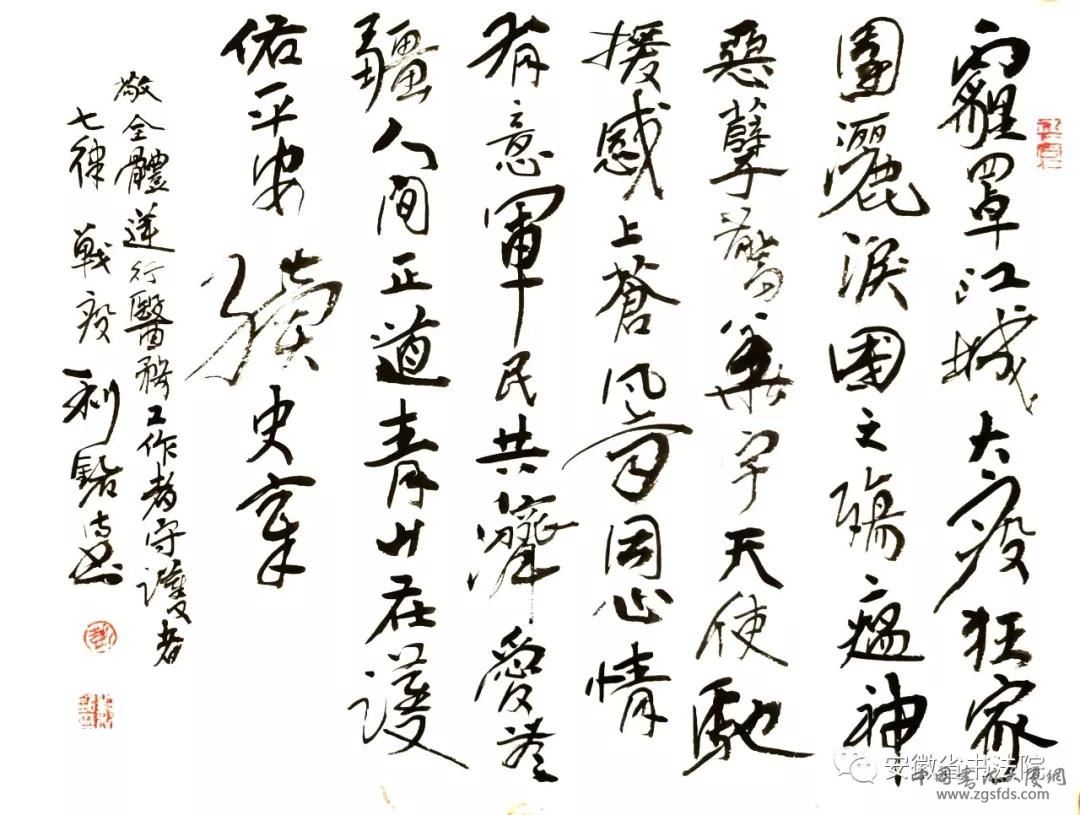 霾罩江城大疫狂家
園灑淚國之殤瘟神
惡孽驚寰宇天使馳
援感上蒼风雨同心情
有意軍民共濟愛無
疆人間正道青山在護
佑平安續史章
敬全體逆行醫務工作者守護者
七律 戰疫 利
安徽省书法院
中国書法大厦網
www.zgsfds.com